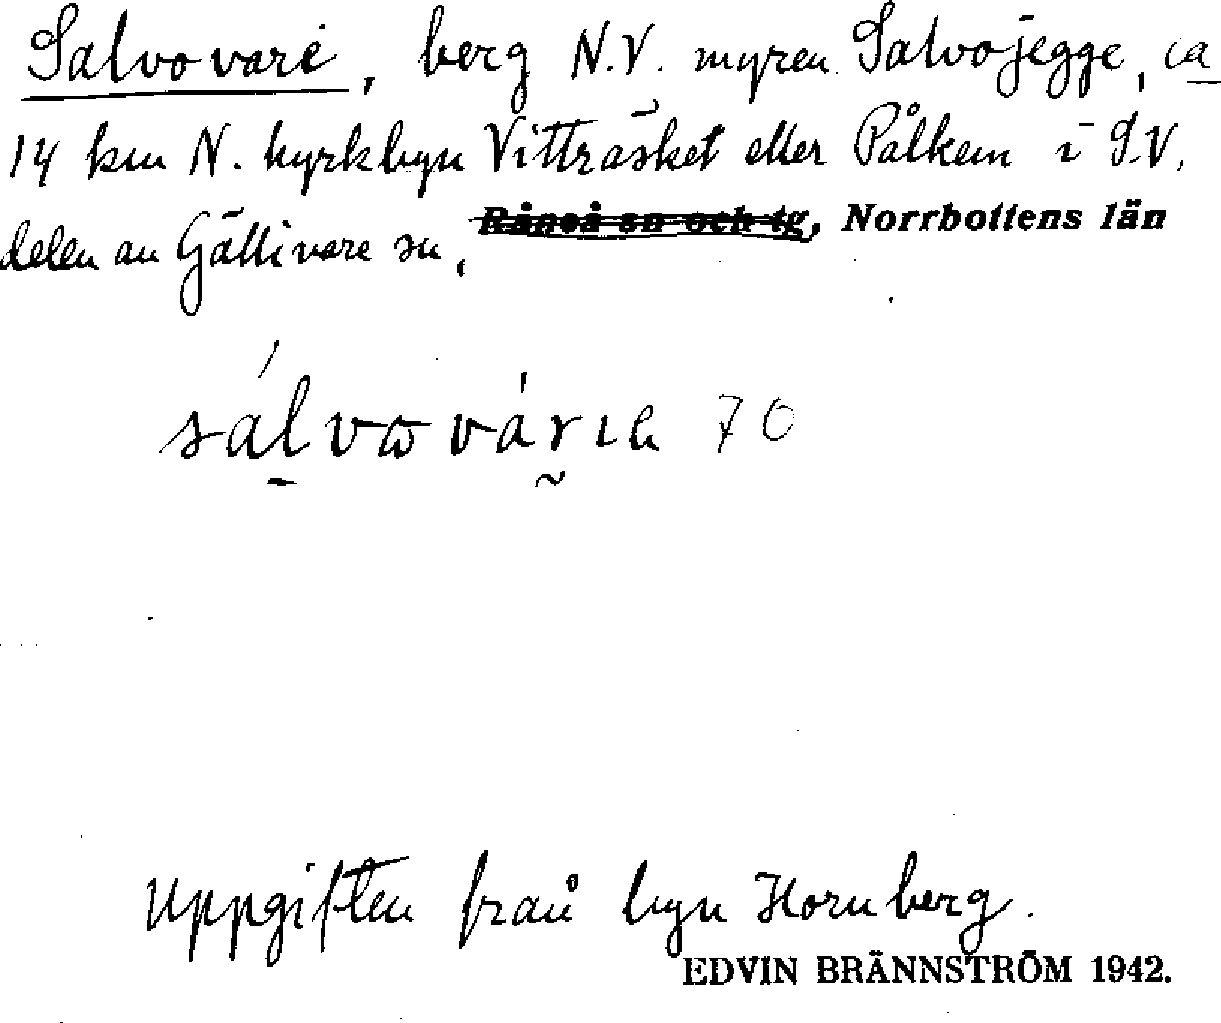 Salvovare, berg N.V. myren Salvojegge, ca
14 km N. kyrkbyn Vitträsket eller Pålkem i S.V.
delen av Gällivare sn, Råneå sn och tg, Norrbottens län
sálvovárıe 70
Uppgiften från byn Hornberg.
EDVIN BRÄNNSTRÖM 1942.